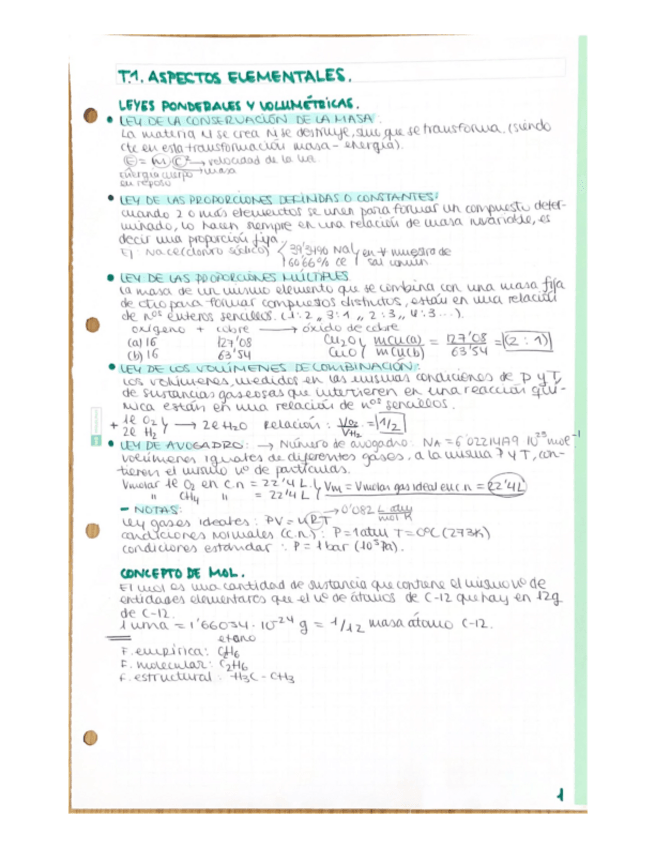 T.1. ASPECTOS ELEMENTALES.
LEYES PONDERALES Y VOLUMÉTRICAS.
• LEY DE LA CONSERVACIÓN DE LA MASA:
La materia NI se crea NI se destruye, sino que se transforma. (siendo
cte en esta transformación masa - energía).
E = m c² → velocidad de la luz.
energía cuerpo → masa
en reposo
• LEY DE LAS PROPORCIONES DEFINIDAS O CONSTANTES:
cuando 2 o más elementos se unen para formar un compuesto deter-
minado, lo hacen siempre en una relación de masa invariable, es
decir una proporción fija.
Ej NaCl (cloruro sódico) 39'34% Na en ∀ muestra de
60'66% Cl sal común.
• LEY DE LAS PROPORCIONES MÚLTIPLES
La masa de un mismo elemento que se combina con una masa fija
de otro para formar compuestos distintos, están en una relación
de nos enteros sencillos. (1:2,, 3:1,, 2:3,, 4:3...).
oxígeno + cobre → óxido de cobre
(a) 16 127'08 Cu2O m Cu(a) = 127'08 = (2:1)
(b) 16 63'54 CuO m Cu(b) 63'54
• LEY DE LOS VOLÚMENES DE COMBINACIÓN:
Los volúmenes, medidos en las mismas condiciones de P y T,
de sustancias gaseosas que intervienen en una reacción quí-
mica están en una relación de nos sencillos.
+ 1l O2 → 2l H2O Relación: VO2 = 1/2
2l H2 VH2
• LEY DE AVOGADRO: → Número de avogadro: NA = 6'0221499 10²³ mol⁻¹
volúmenes iguales de diferentes gases, a la misma P y T, con-
tienen el mismo nº de partículas.
Vmolar 1l O2 en C.n = 22'4 L. Vm = Vmolar gas ideal en c.n = 22'4 L
" CH4 " = 22'4 L
- NOTAS: → 0'082 L atm
mol K
Ley gases ideales: PV = nRT
condiciones normales (c.n.): P = 1 atm T = 0ºC (273K)
condiciones estándar: P = 1 bar (10⁵ Pa).
CONCEPTO DE MOL.
El mol es una cantidad de sustancia que contiene el mismo nº de
entidades elementales que el nº de átomos de C-12 que hay en 12g
de C-12.
1 uma = 1'66034 · 10⁻²⁴ g = 1/12 masa átomo C-12.
etano
F. empírica: CH6
F. molecular: C2H6
F. estructural: H3C - CH3
1